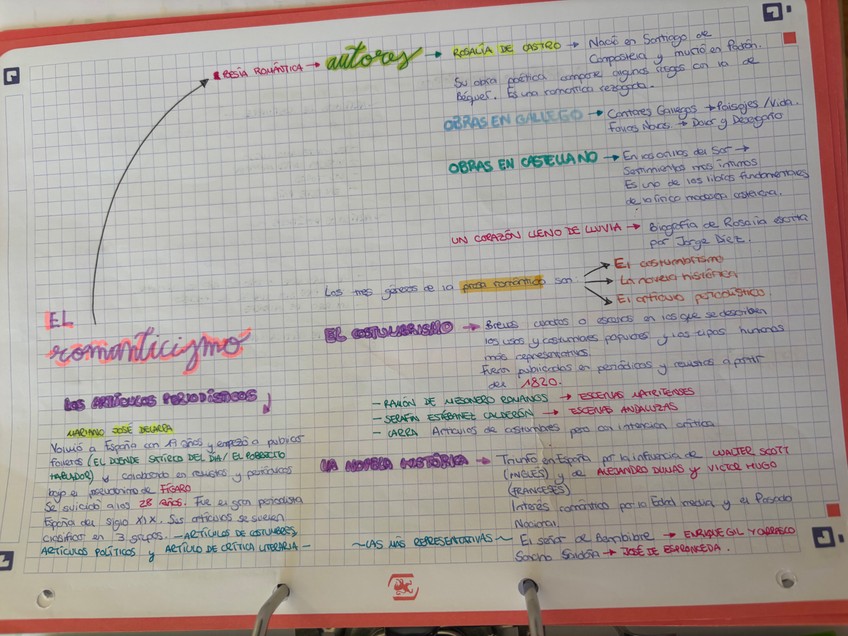 POESÍA ROMÁNTICA → autores → ROSALÍA DE CASTRO → Nació en Santiago de
Compostela y murió en Padrón.
Su obra poética comparte algunos rasgos con la de
Béquer. Es una romántica rezagada.
OBRAS EN GALLEGO → Cantares Gallegos → Paisajes / Vida.
Follas Novas → Dolor y Desengaño
OBRAS EN CASTELLANO → En las orillas del Sar →
Sentimientos más íntimos
Es uno de los libros fundamentales
de la lírica moderna
UN CORAZÓN LLENO DE LLUVIA → Biografía de Rosalía escrita
por Jorge Diez.
Los tres géneros de la prosa romántica son
→ El costumbrismo
→ La novela histórica
→ El artículo periodístico
EL
romanticismo
EL COSTUMBRISMO → Breves cuadros o escenas en los que se describen
los usos y costumbres populares y los tipos humanos
más representativos.
Fueron publicados en periódicos y revistas a partir
del 1820.
- RAMÓN DE MESONERO ROMANOS → ESCENAS MATRITENSES
- SERAFÍN ESTÉBANEZ CALDERÓN → ESCENAS ANDALUZAS
- LARRA Artículos de costumbres pero con intención crítica
LA NOVELA HISTÓRICA → Triunfó en España por la influencia de WALTER SCOTT
(INGLÉS) y de ALEJANDRO DUMAS y VICTOR HUGO
(FRANCESES)
Interés romántico por la Edad media y el Pasado
Nacional.
~LAS MÁS REPRESENTATIVAS~ El señor de Bembibre → ENRIQUE GIL Y CARRASCO
Sancho Saldaña → JOSÉ DE ESPRONCEDA.
LOS ARTÍCULOS PERIODÍSTICOS
MARIANO JOSÉ DE LARRA
Volvió a España con 19 años y empezó a publicar
folletos (EL DUENDE SATÍRICO DEL DÍA / EL POBRECITO
HABLADOR) y colaborando en revistas y periódicos
bajo el pseudónimo de FÍGARO
Se suicidó a los 28 AÑOS. Fue el gran periodista
España del siglo XIX. Sus artículos se suelen
clasificar en 3 grupos. - ARTÍCULOS DE COSTUMBRES,
ARTÍCULOS POLÍTICOS y ARTÍULO DE CRÍTICA LITERARIA -